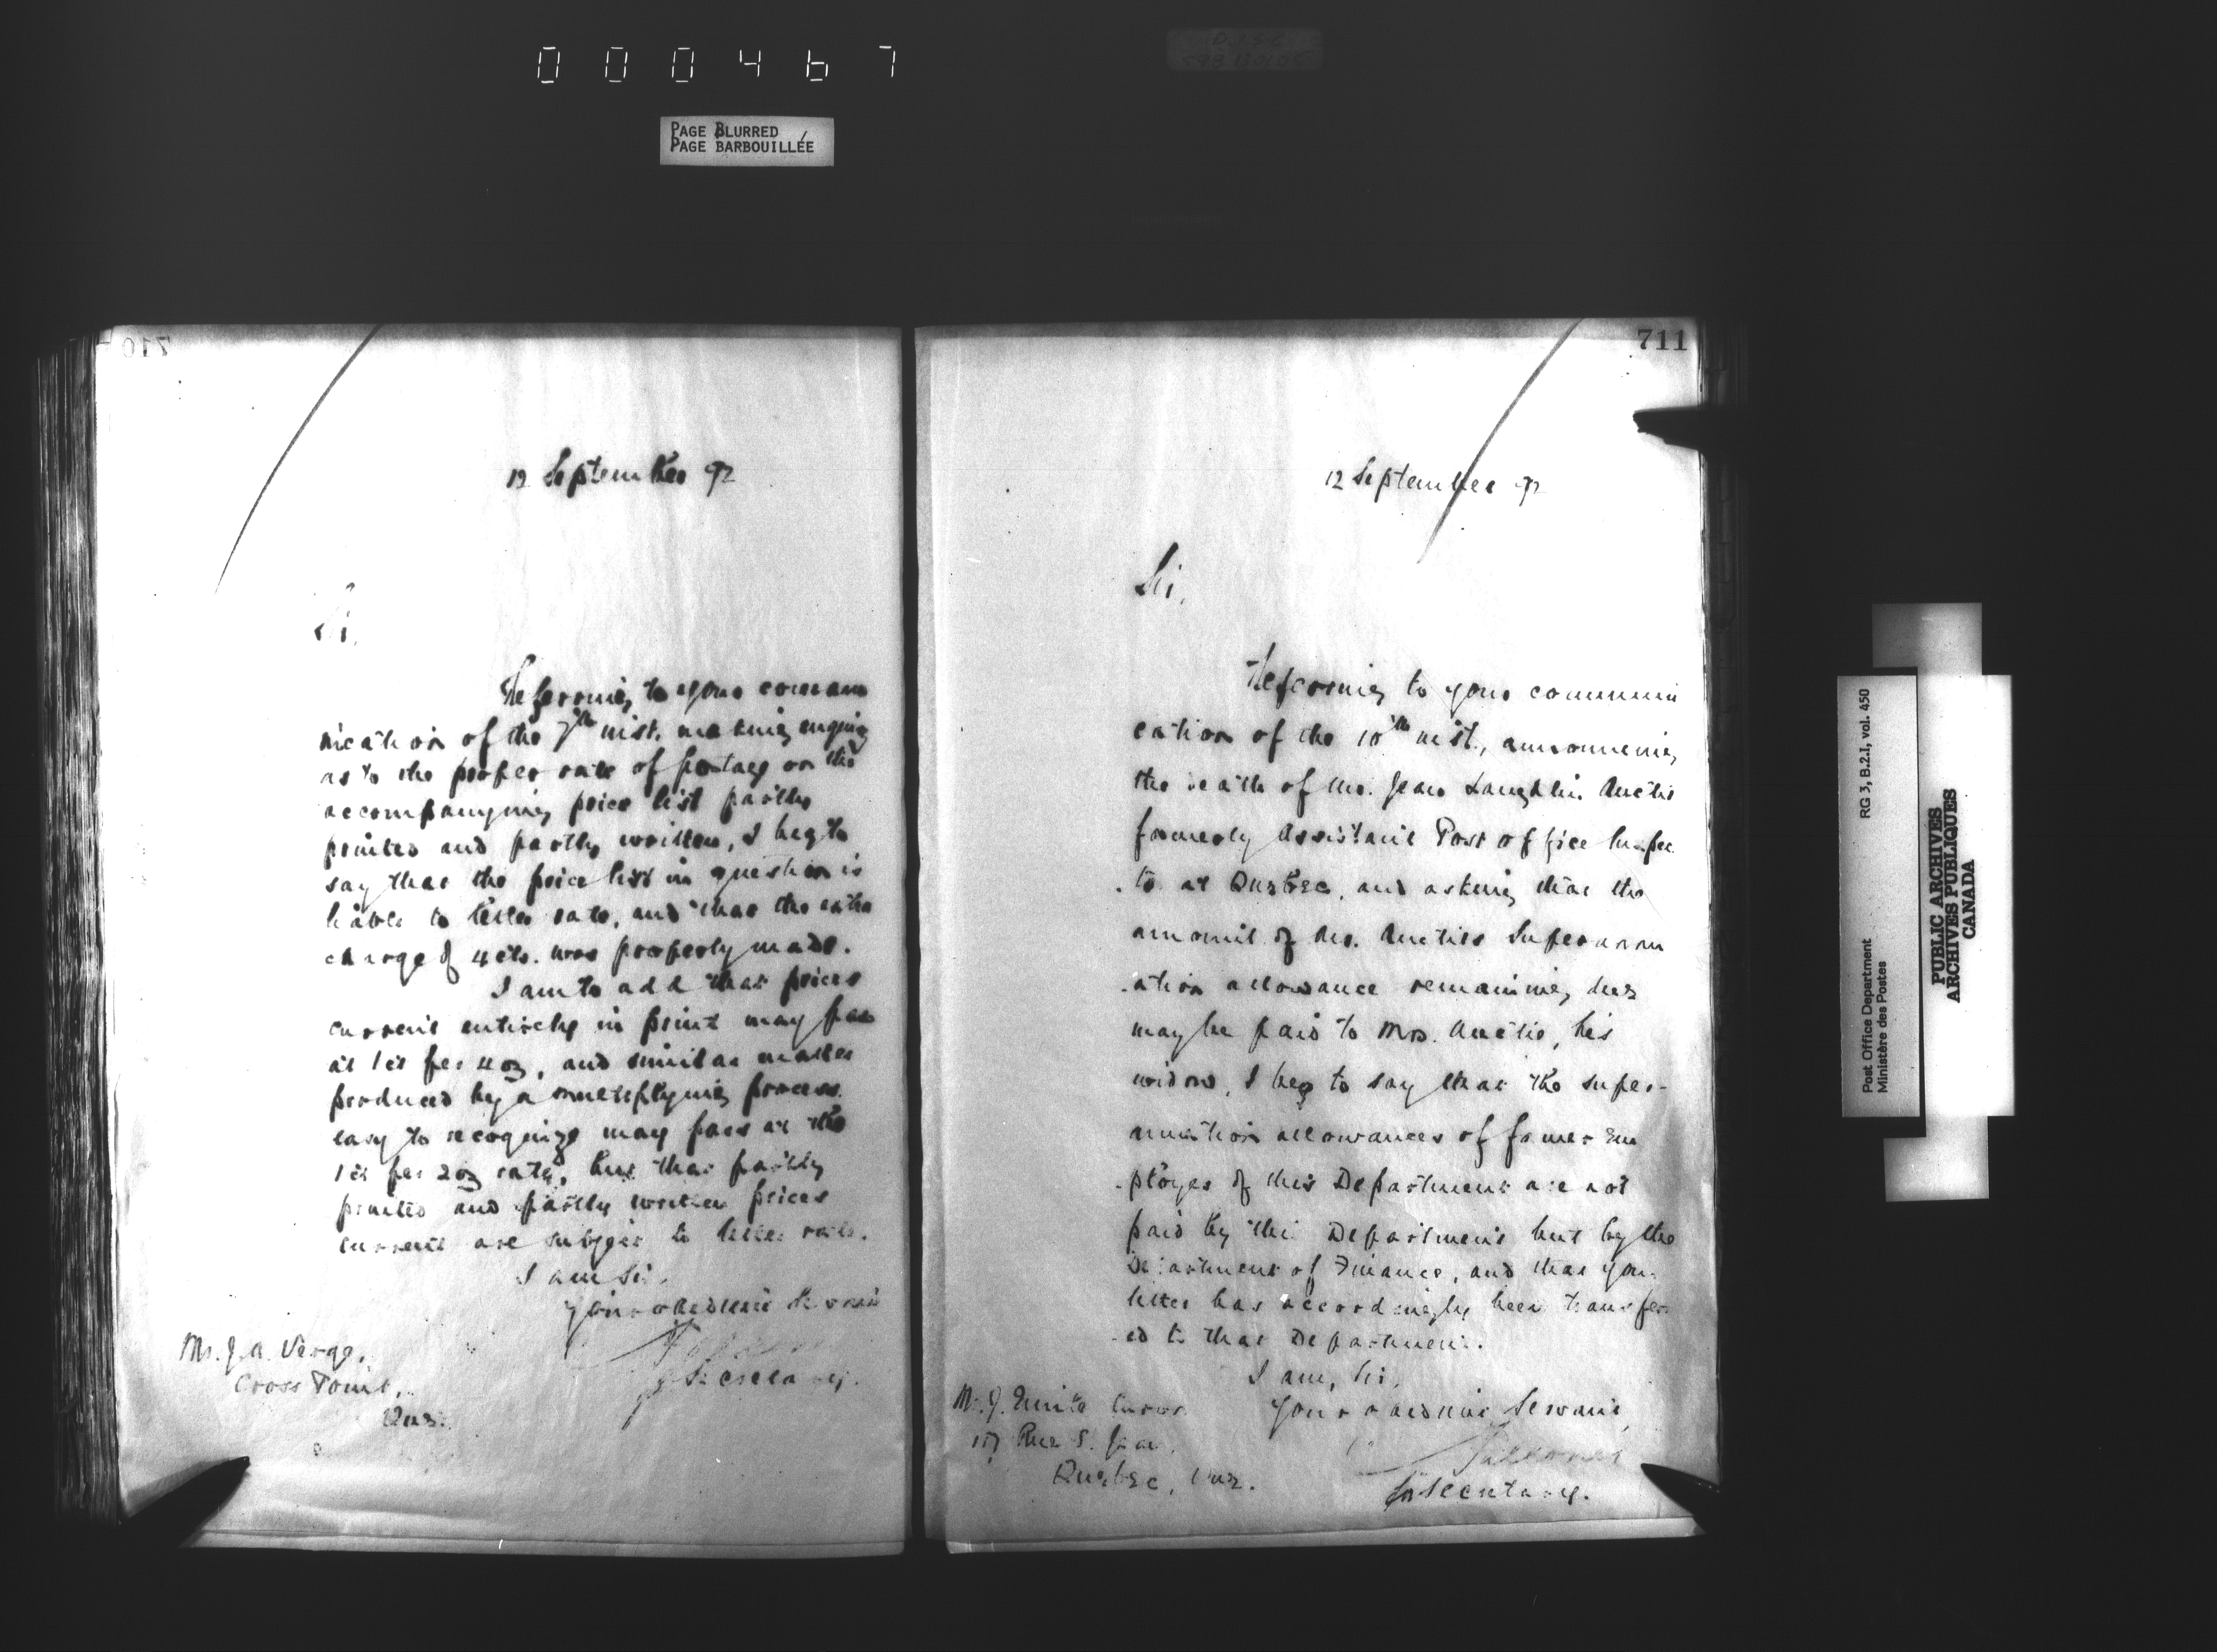 000467
PAGE BLURRED
PAGE BARBOUILLÉE
710
12 September 92
Sir,
Referring to your commu
nication of the 7th inst. making enquiry
as to the proper rate of postage on the
accompanying price list partly
printed and partly written, I beg to
say that the price list in question is
liable to letter rate, and that the extra
charge of 4 cts. was properly made.
I am to add that prices
current entirely in print may pass
at 1 ct per 4 oz, and similar matter
produced by a multiplying process
easy to recognize may pass at the
1 ct per 2 oz rate, but that partly
printed and partly written prices
current are subject to letter rate.
I am Sir,
Your obedient Servant
Secretary.
Mr. J. A. Verge,
Cross Point,
Que.
711
12 September 92
Sir,
Referring to your communi
cation of the 10th inst., announcing
the death of Mr. Jean Langhlin Auctis
formerly Assistant Post Office Inspec
tor at Quebec, and asking that the
amount of Mr. Superannu
-ation allowance remaining due
may be paid to Mrs. his
widow, I beg to say that the super-
annuation allowances of former Em
-ployes of this Department are not
paid by this Department but by the
Department of Finance, and that your
letter has accordingly been transferr
-ed to that Department.
I am, Sir,
Your obedient Servant,
Secretary.
Mr. J.
Rue S. Jean,
Quebec, Que.
Post Office Department
Ministère des Postes
RG 3, B.2.I, vol. 450
PUBLIC ARCHIVES
ARCHIVES PUBLIQUES
CANADA